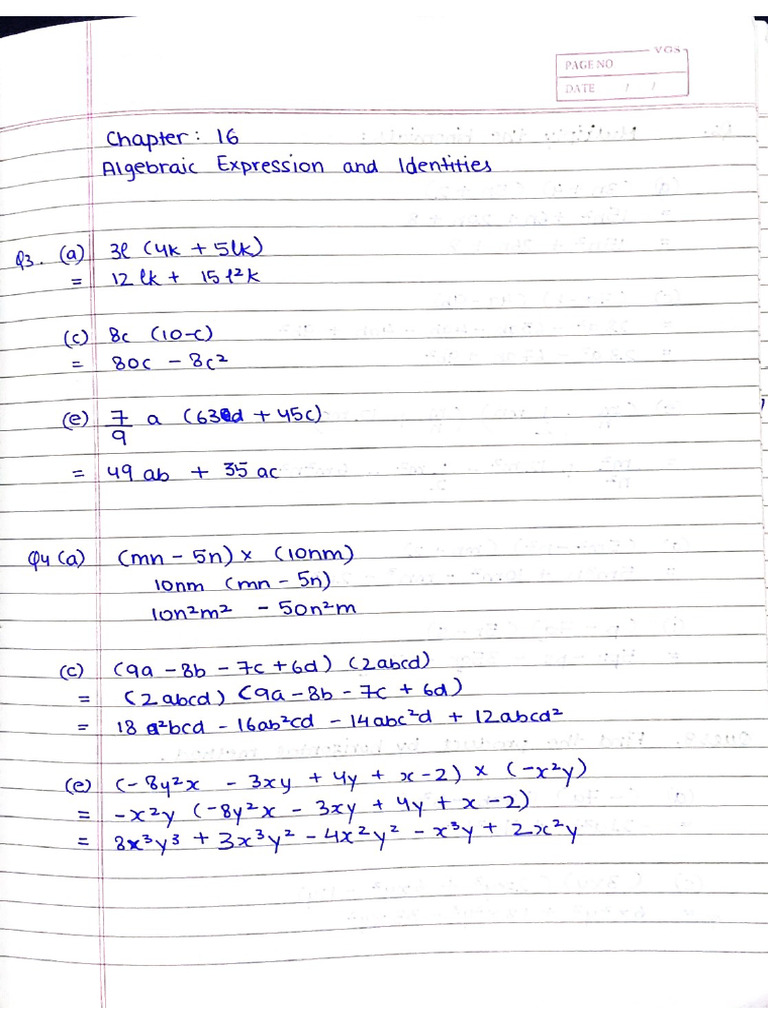 VGS
PAGE NO
DATE / /
Chapter: 16
Algebraic Expression and Identities
Q3. (a) 3l (4k + 5lk)
= 12lk + 15l²k
(c) 8c (10-c)
= 80c - 8c²
(e) 7/9 a (63d + 45c)
= 49ab + 35ac
Q4 (a) (mn - 5n) × (10nm)
10nm (mn - 5n)
10n²m² - 50n²m
(c) (9a - 8b - 7c + 6d) (2abcd)
= (2abcd) (9a - 8b - 7c + 6d)
= 18a²bcd - 16ab²cd - 14abc²d + 12abcd²
(e) (-8y²x - 3xy + 4y + x - 2) × (-x²y)
= -x²y (-8y²x - 3xy + 4y + x - 2)
= 8x³y³ + 3x³y² - 4x²y² - x³y + 2x²y